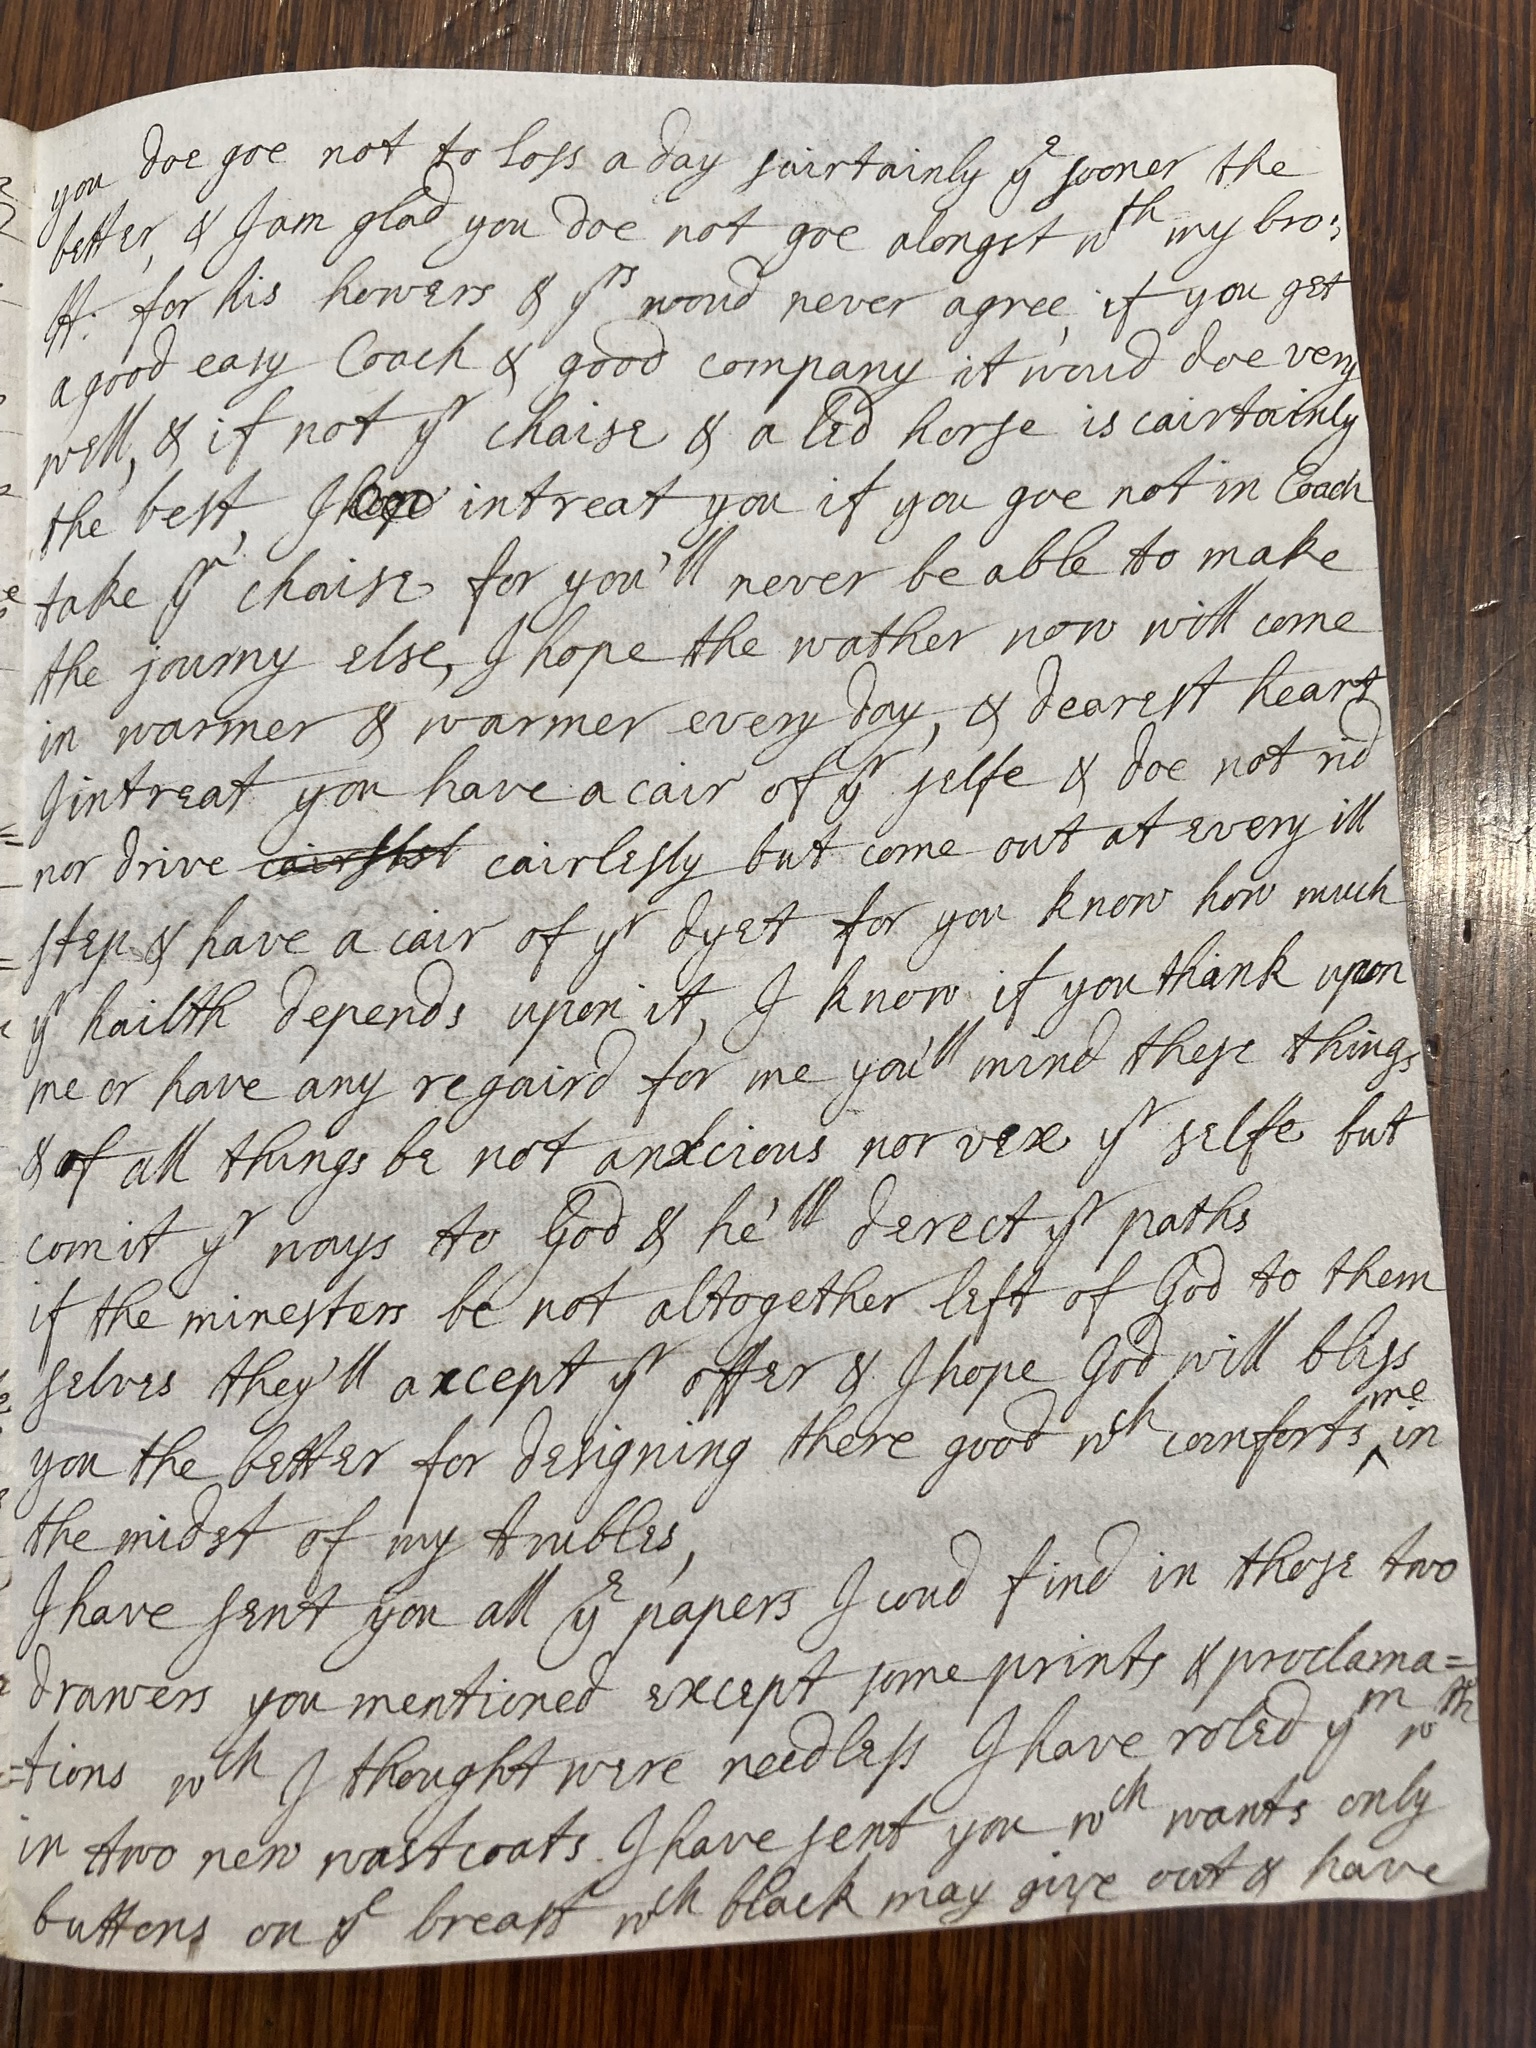 you doe goe not to loss a day sairtainly ye sooner the
better, & I am glad you doe not goe alongst wth my bro:
H: for his howers & yrs woud never agree, if you get
a good easy Coach & good company it woud doe very
well, & if not yr chaise & a led horse is cairtainly
the best, I intreat you if you goe not in Coach
take yr chaise for you'll never be able to make
the journy else, I hope the wather now will come
in warmer & warmer every day, & dearest heart
I intreat you have a cair of yr selfe & doe not rid
nor drive cairlesly but come out at every ill
step & have a cair of yr dyet for you know how much
yr hailth depends upon it, I know if you think upon
me or have any regaird for me you'll mind these things
& of all things be not anxcious nor vex yr selfe but
comit yr ways to God & he'll derect yr paths
if the minesters be not altogether left of God to them
selves they'll axcept yr offer & I hope God will bliss
you the better for designing there good wch comforts me in
the midst of my trubles,
I have sent you all ye papers I coud find in those two
drawers you mentioned except some prints & proclama=
=tions wch I thought were needless I have roled ym wth
in two new wastcoats I have sent you wch wants only
buttons on ye breast wch black may give out & have